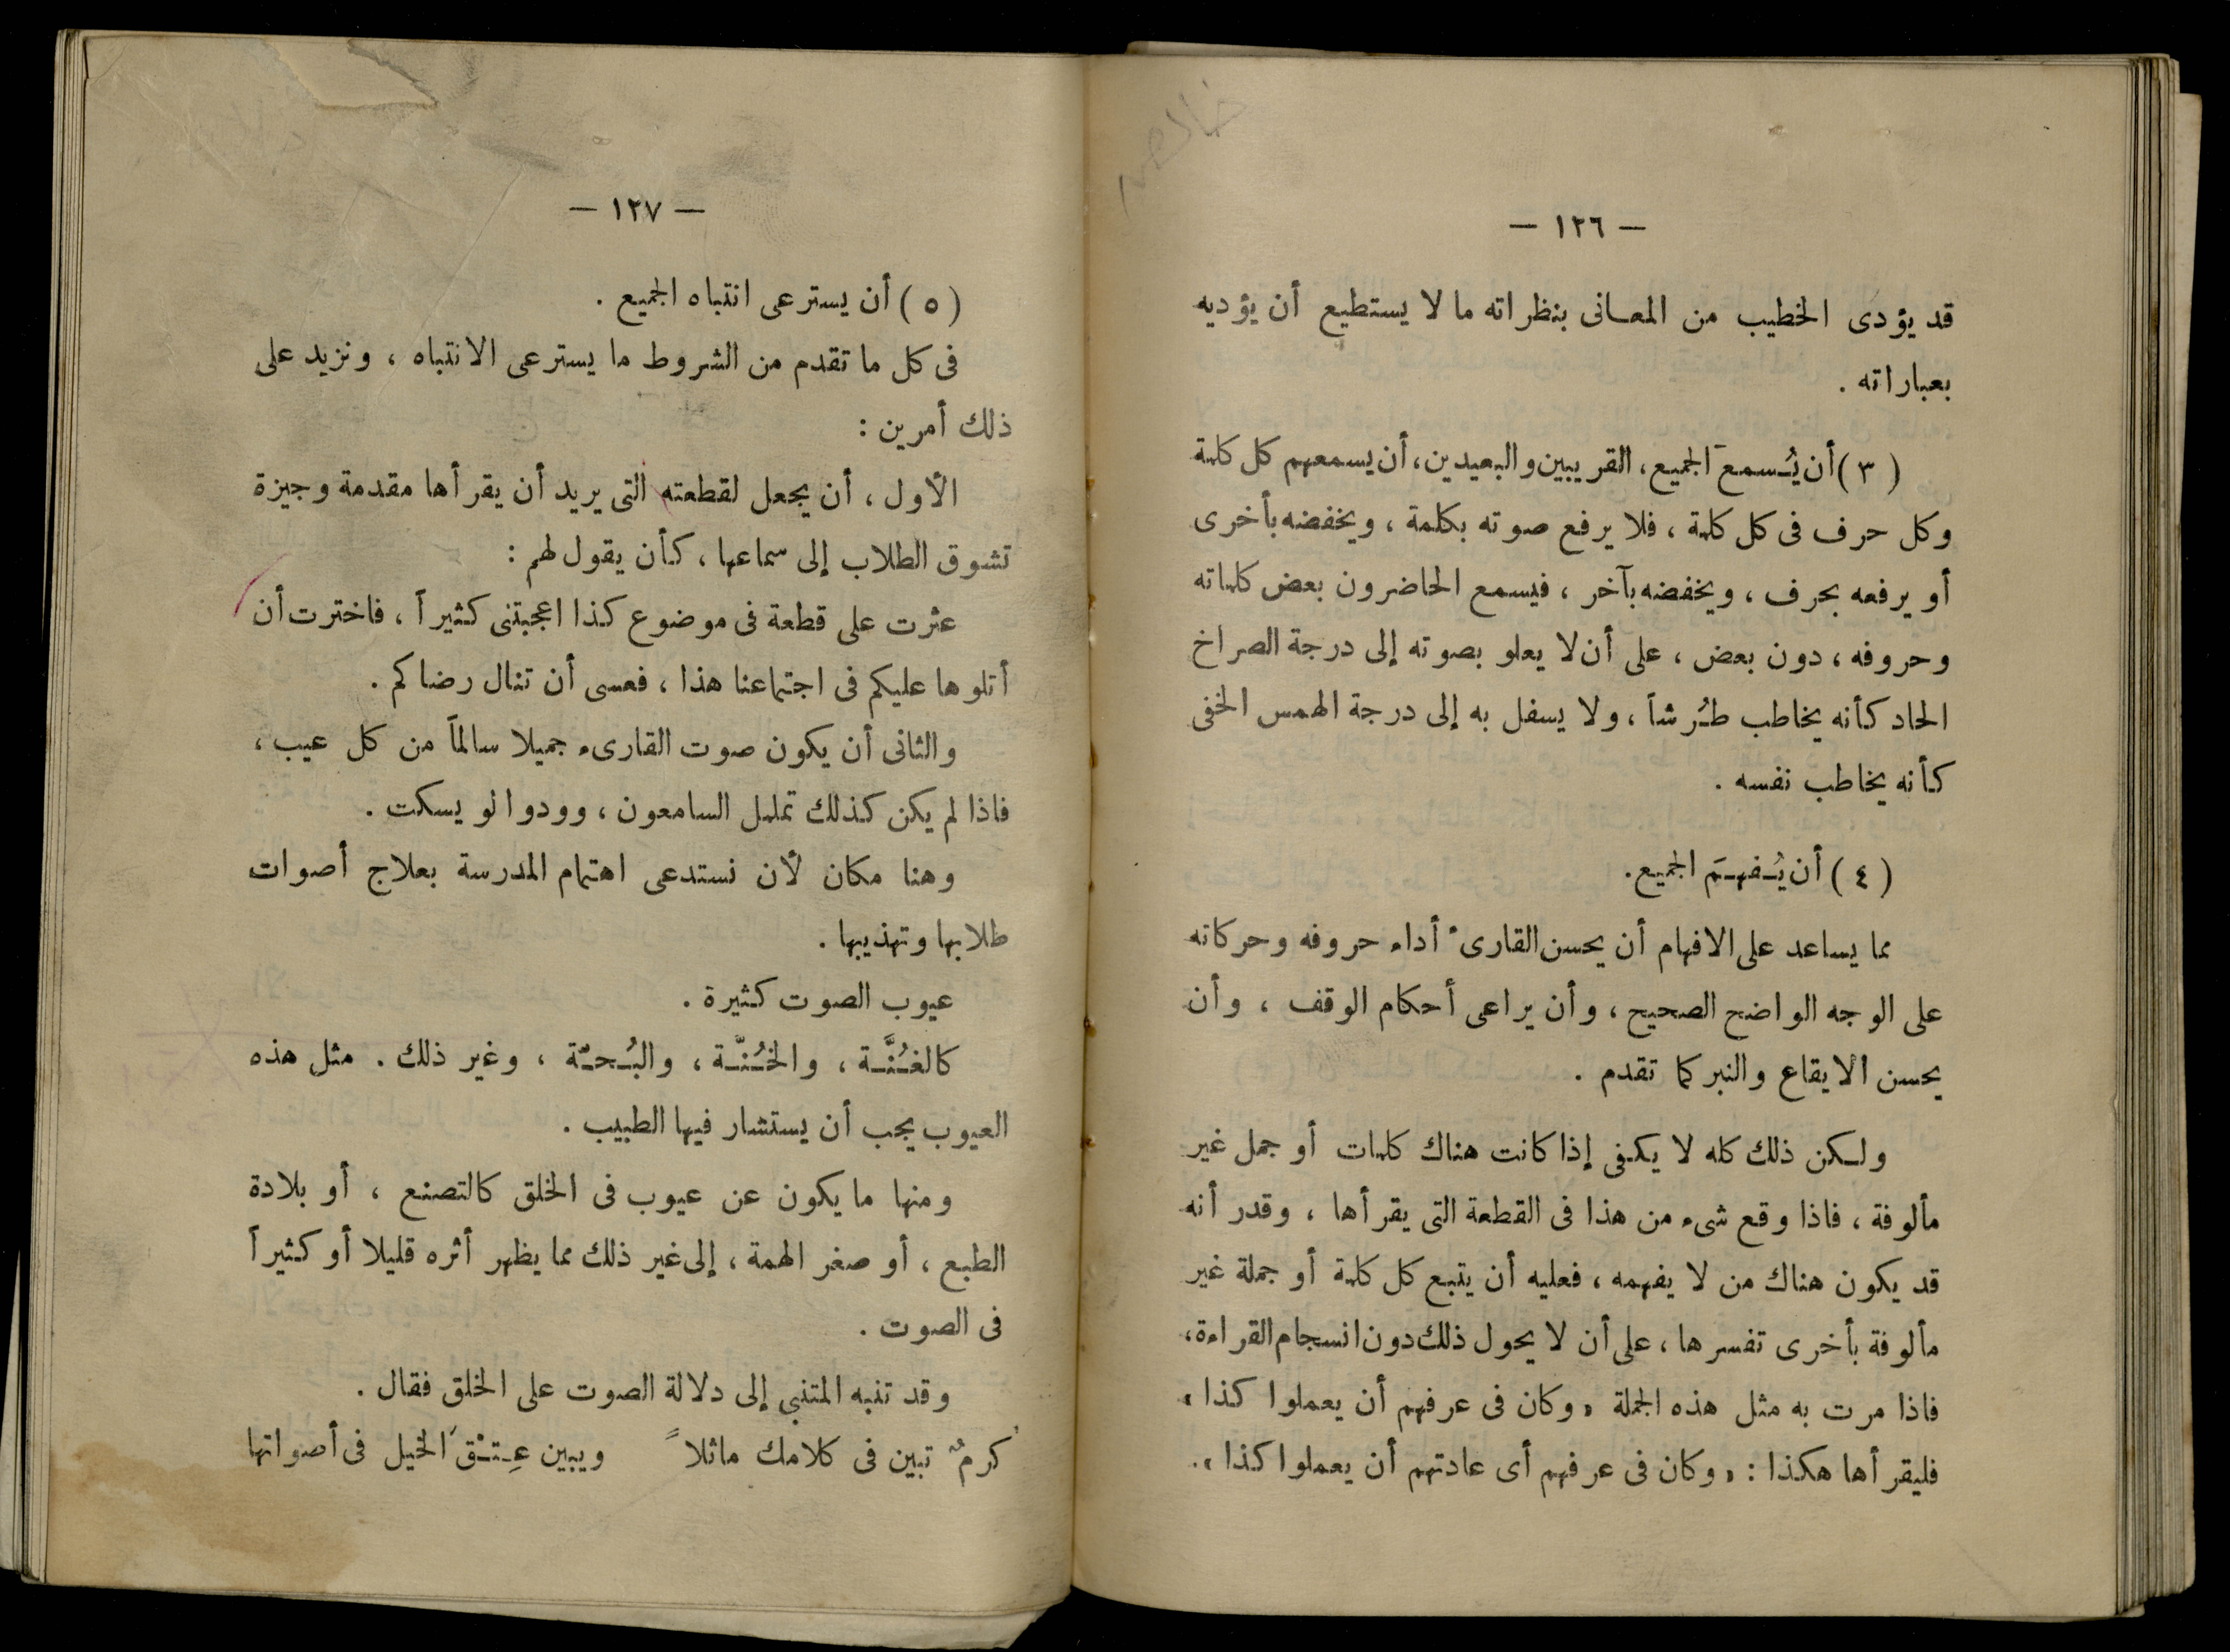 — ١٢٦ —
قد يؤدى الخطيب من المعانى بنظراته ما لا يستطيع أن يؤديه
بعباراته .
( ٣ ) أن يُسمعَ الجميع ، القريبين والبعيدين ، أن يسمعهم كل كلمة
وكل حرف فى كل كلمة ، فلا يرفع صوته بكلمة ، ويخفضه بأخرى
أو يرفعه بحرف ، ويخفضه بآخر ، فيسمع الحاضرون بعض كلماته
وحروفه ، دون بعض ، على أن لا يعلو بصوته إلى درجة الصراخ
الحاد كأنه يخاطب طُرشاً ، ولا يسفل به إلى درجة الهمس الخفى
كأنه يخاطب نفسه .
( ٤ ) أن يُفهمَ الجميع .
مما يساعد على الافهام أن يحسن القارىء أداء حروفه وحركاته
على الوجه الواضح الصحيح ، وأن يراعى أحكام الوقف ، وأن
يحسن الايقاع والنبر كما تقدم .
ولكن ذلك كله لا يكفى إذا كانت هناك كلمات أو جمل غير
مألوفة ، فاذا وقع شىء من هذا فى القطعة التى يقرأها ، وقدر أنه
قد يكون هناك من لا يفهمه ، فعليه أن يتبع كل كلمة أو جملة غير
مألوفة بأخرى تفسرها ، على أن لا يحول ذلك دون انسجام القراءة ،
فاذا مرت به مثل هذه الجملة « وكان فى عرفهم أن يعملوا كذا »
فليقرأها هكذا : « وكان فى عرفهم أى عادتهم أن يعملوا كذا » .
— ١٢٧ —
( ٥ ) أن يسترعى انتباه الجميع .
فى كل ما تقدم من الشروط ما يسترعى الانتباه ، ونزيد على
ذلك أمرين :
الأول ، أن يجعل لقطعته التى يريد أن يقرأها مقدمة وجيزة
تشوق الطلاب إلى سماعها ، كأن يقول لهم :
عثرت على قطعة فى موضوع كذا اعجبتنى كثيراً ، فاخترت أن
أتلوها عليكم فى اجتماعنا هذا ، فعسى أن تنال رضاكم .
والثانى أن يكون صوت القارىء جميلا سالماً من كل عيب ،
فاذا لم يكن كذلك تململ السامعون ، وودوا لو يسكت .
وهنا مكان لأن نستدعى اهتمام المدرسة بعلاج أصوات
طلابها وتهذيبها .
عيوب الصوت كثيرة .
كالغُنَّة ، والخُنّة ، والبُحّة ، وغير ذلك . مثل هذه
العيوب يجب أن يستشار فيها الطبيب .
ومنها ما يكون عن عيوب فى الخلق كالتصنع ، أو بلادة
الطبع ، أو صغر الهمة ، إلى غير ذلك مما يظهر أثره قليلا أو كثيراً
فى الصوت .
وقد تنبه المتنبى إلى دلالة الصوت على الخلق فقال .
كرمٌ تبين فى كلامك ماثلاً ويبين عِتْقُ الخيل فى أصواتها